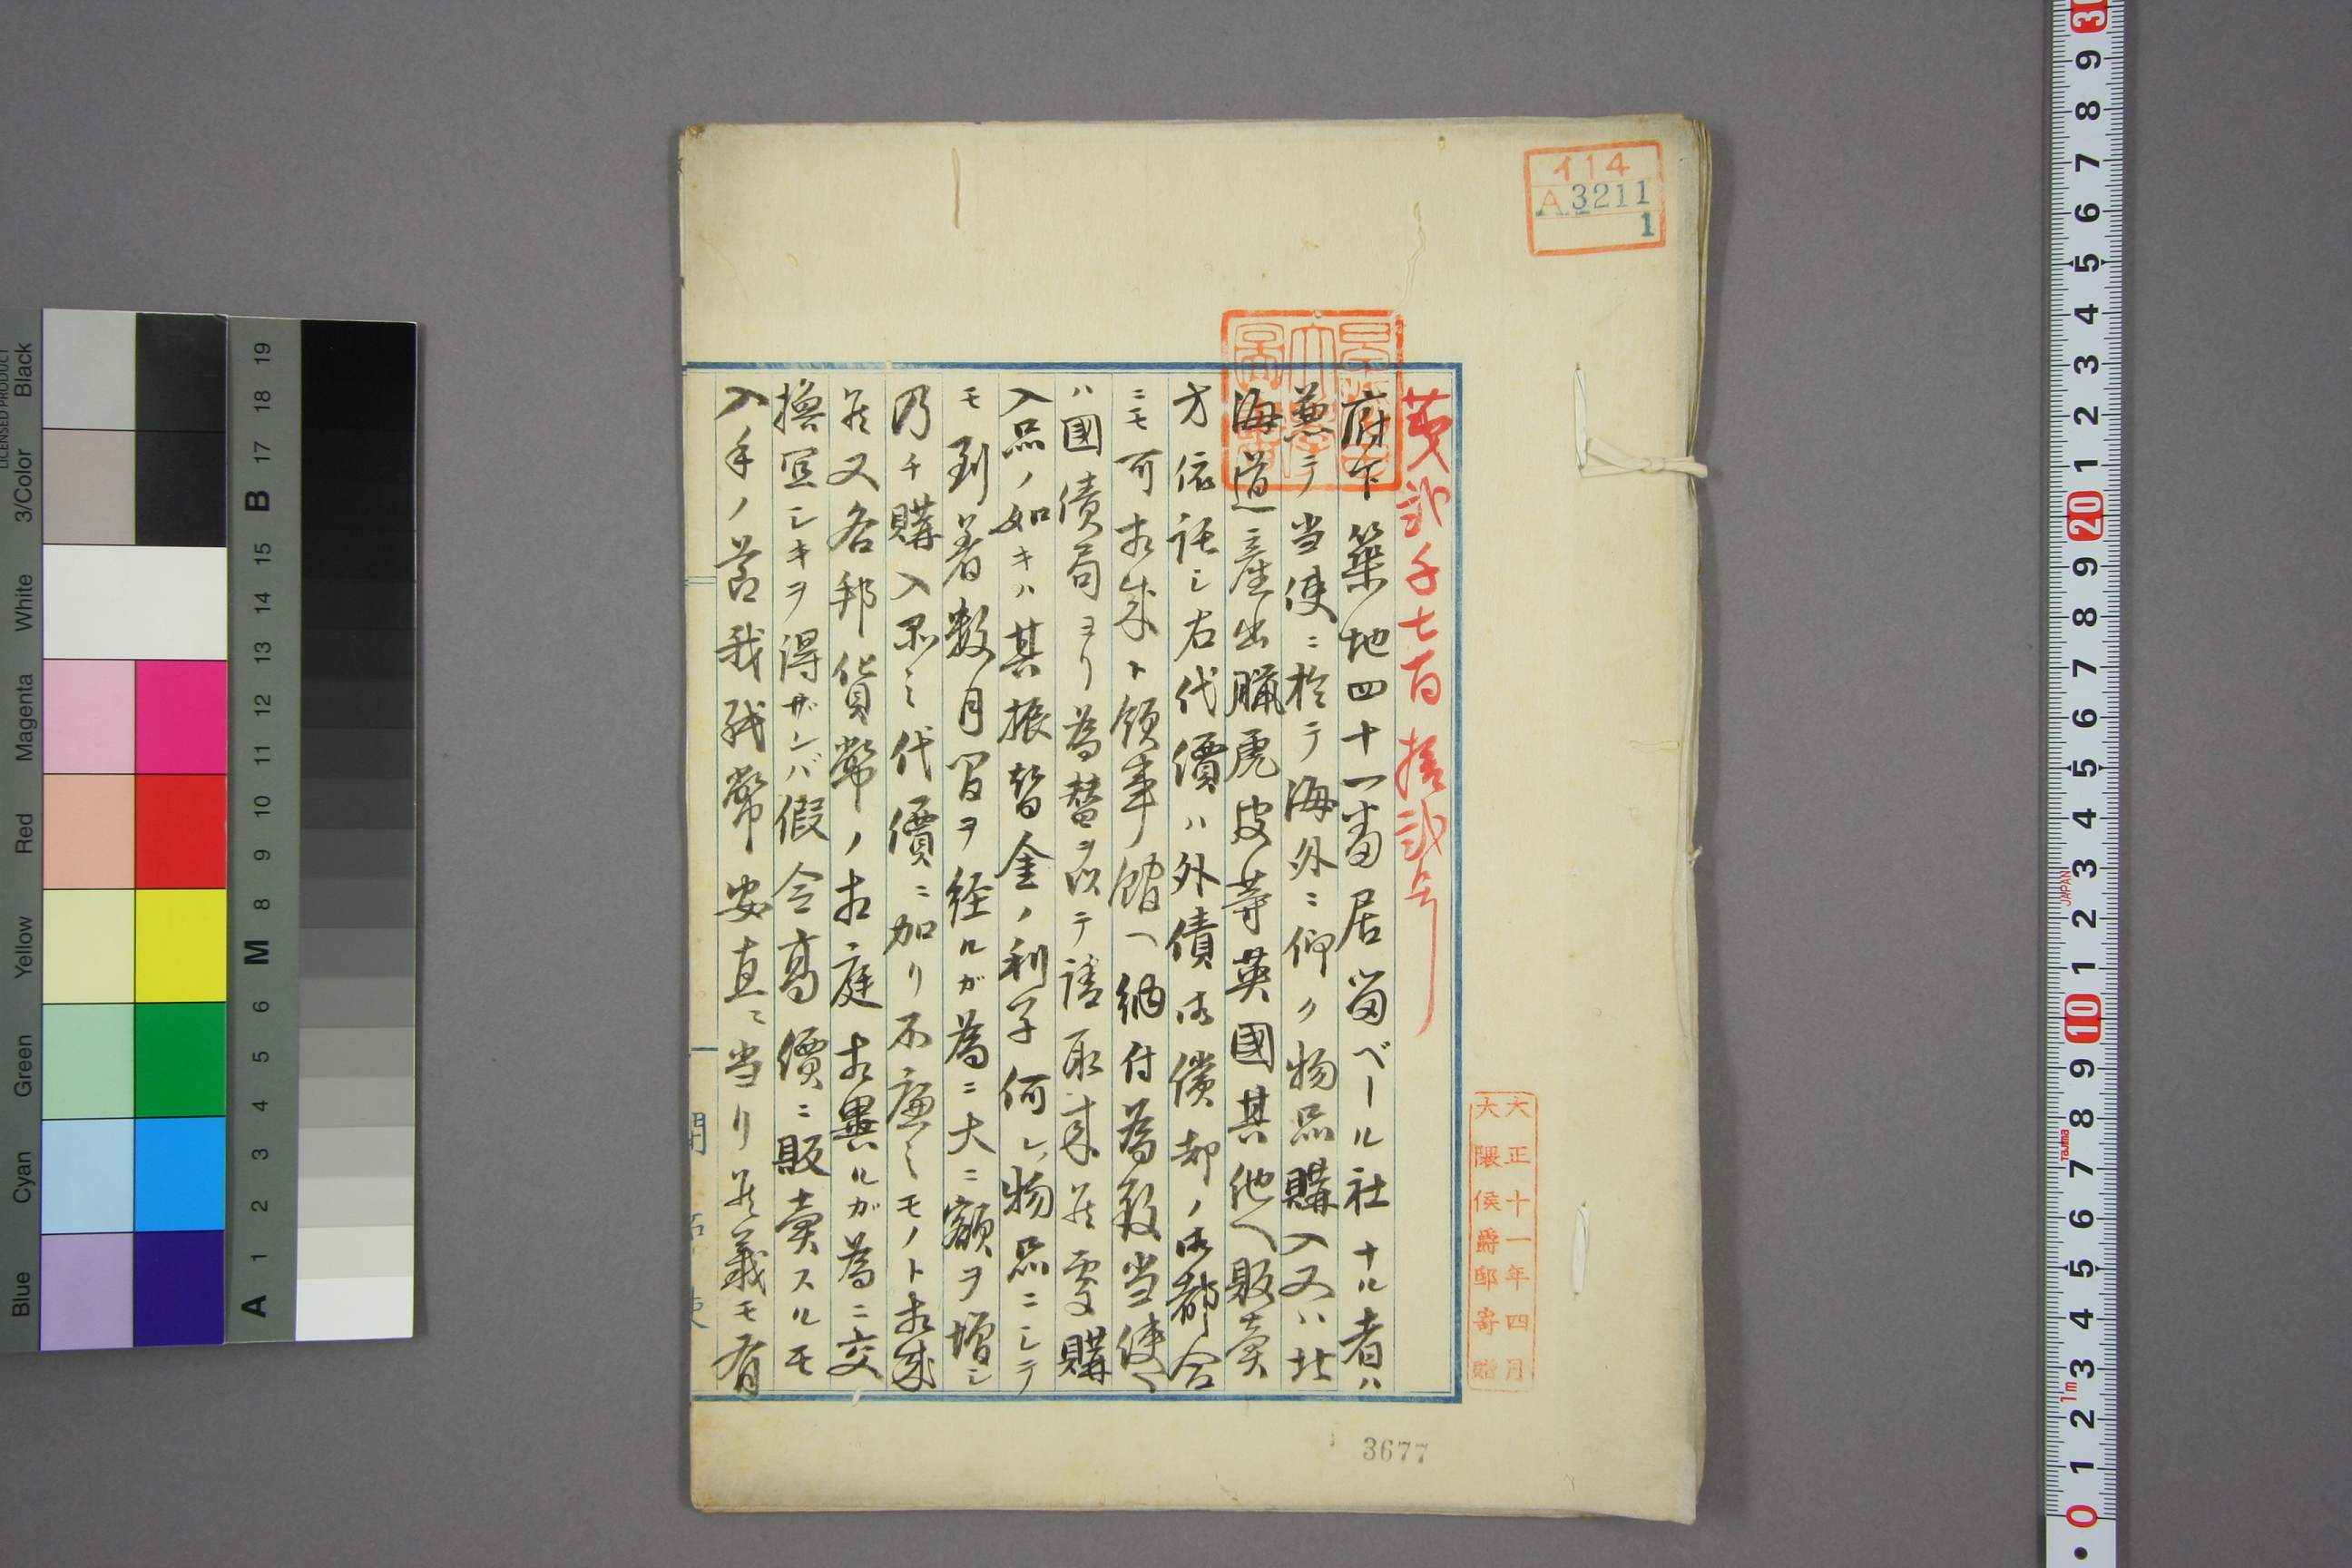 イ14
A 3211
1
第弐千七百拾弐号
府下築地四十一番居留ベール社ナル者ハ
兼テ当使ニ於テ海外ニ仰ク物品購入又ハ北
海道産出臘虎皮等英國其他ヘ販賣
方依託シ右代價ハ外債御償却ノ御都合
ニモ可相成ト領事館ヘ納付為致当使ヘ
ハ國債局ヨリ為替ヲ以テ請取来候處購
入品ノ如キハ其振替金ノ利子何レ物品ニシテ
モ到着数月間ヲ経ルガ為ニ大ニ額ヲ増シ
乃チ購入品ノ代價ニ加リ不廉ノモノト相成
候又各邦貨幣ノ相庭相異ルガ為ニ交
換宜シキヲ得ザレバ假令高價ニ販賣スルモ
入手ノ節我紙幣安直ニ当リ候義モ有
大正十一年四月
大隈侯爵邸寄贈
3677
開拓使
LICENSED PRODUCT
Black
3/Color
White
Magenta
Red
Yellow
Green
Cyan
Blue
19
18
17
B
15
14
13
12
11
10
9
8
M
6
5
4
3
2
1
A
JAPAN
Tajima
1m